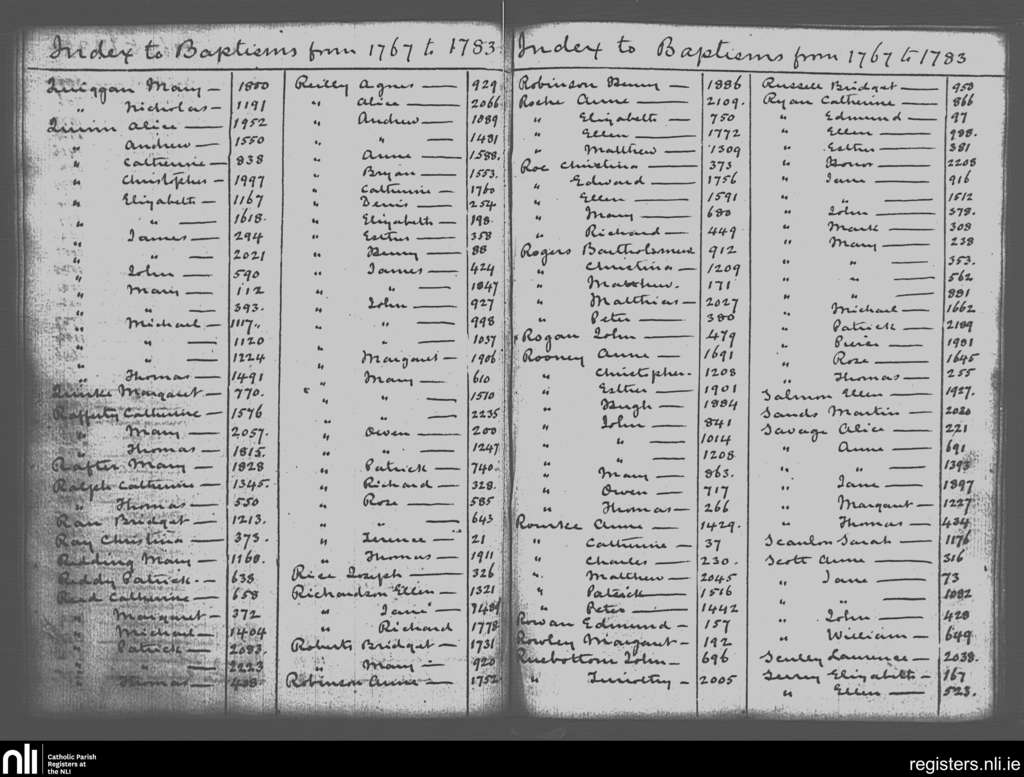 Index to Baptisms from 1767 to 1783
Quiggan Mary — 1800
" Nicholas — 1191
Quinn Alice — 1952
" Andrew — 1550
" Catherine — 838
" Christopher — 1997
" Elizabeth — 1167
" " — 1618.
" James — 294
" " — 2021
" John — 590
" Mary — 112
" " — 393.
" Michael — 1117.
" " — 1120
" " — 1224
" Thomas — 1491
Quirke Margaret — 770.
Rafferty Catherine — 1576
" Mary — 2057.
" Thomas — 1815.
Rafter Mary — 1828
Ralph Catherine — 1345.
" Thomas — 550
Rau Bridget — 1213.
Ray Christina — 373.
Redding Mary — 1168.
Reddy Patrick. — 638
Reid Catherine — 658
" Margaret — 372
" Michael — 1404
" Patrick — 2083.
" " — 2223
" Thomas — 408
Reilly Agnes — 929
" Alice — 2066
" Andrew — 1089
" " — 1481
" Anne — 1588.
" Bryan — 1553.
" Catherine — 1760
" Denis — 254
" Elizabeth — 198.
" Esther — 358
" Henry — 88
" James — 424
" " — 1847
" John — 927
" " — 998
" " — 1037
" Margaret — 1906
" Mary — 610
" " — 1570
" " — 2235
" Owen — 200
" " — 1247
" Patrick — 740.
" Richard — 328.
" Rose — 585
" " — 643
" Terence — 21
" Thomas — 1911
Rice Joseph — 326
Richardson Ellen — 1321
" Jane
" Richard 1778
Roberts Bridget — 1731
" Mary — 920
Robinson Anne — 1752
Index to Baptisms from 1767 to 1783
Robinson Henry — 1886
Roche Anne — 2109.
" Elizabeth — 750
" Ellen — 1772
" Matthew — 1309
Roe Christina — 373
" Edward — 1756
" Ellen — 1591
" Mary — 680
" Richard — 449
Rogers Bartholomew 912
" Christina — 1209
" Matthew. 171
" Matthias — 2027
" Peter — 380
Rogan John — 479
Rooney Anne — 1691
" Christopher. 1208
" Esther — 1901
" Hugh — 1884
" John — 841
" " — 1014
" " — 1208
" Mary — 863.
" Owen — 717
" Thomas — 266
Rourke Anne — 1429.
" Catherine — 37
" Charles — 230.
" Matthew — 2045
" Patrick — 1516
" Peter — 1442
Rowan Edmund — 157
Rowley Margaret — 192
Rusbottom John — 696
" Timothy — 2005
Russell Bridget — 950
Ryan Catherine — 866
" Edmund — 97
" Ellen — 988.
" Esther — 381
" Honor — 2208
" Jane — 916
" " — 1512
" John — 378.
" Mark — 308
" Mary — 238
" " — 353.
" " — 562
" " — 881
" Michael — 1662
" Patrick — 2189
" Pierce — 1981
" Rose — 1645
" Thomas — 255
Salmon Ellen — 1927.
Sands Martin — 2020
Savage Alice — 221
" Anne — 691
" " — 1393
" Jane — 1897
" Margaret — 1227
" Thomas — 434
Scanlon Sarah — 1176
Scott Anne — 316
" Jane — 73
" " — 1082
" John — 428
" William — 649
Laurence — 2038.
Elizabeth — 167
" Ellen — 523.
nli
Catholic Parish
Registers at
the NLI
registers.nli.ie